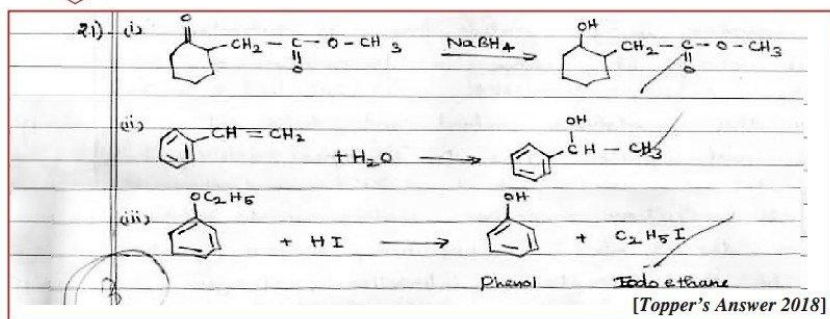 21) (i) O CH2 - C - O - CH3 O NaBH4 OH CH2 - C - O - CH3 O
(ii) CH = CH2 + H2O OH CH - CH3
(iii) OC2H5 + HI OH + C2H5I
Phenol Iodoethane
[Topper's Answer 2018]